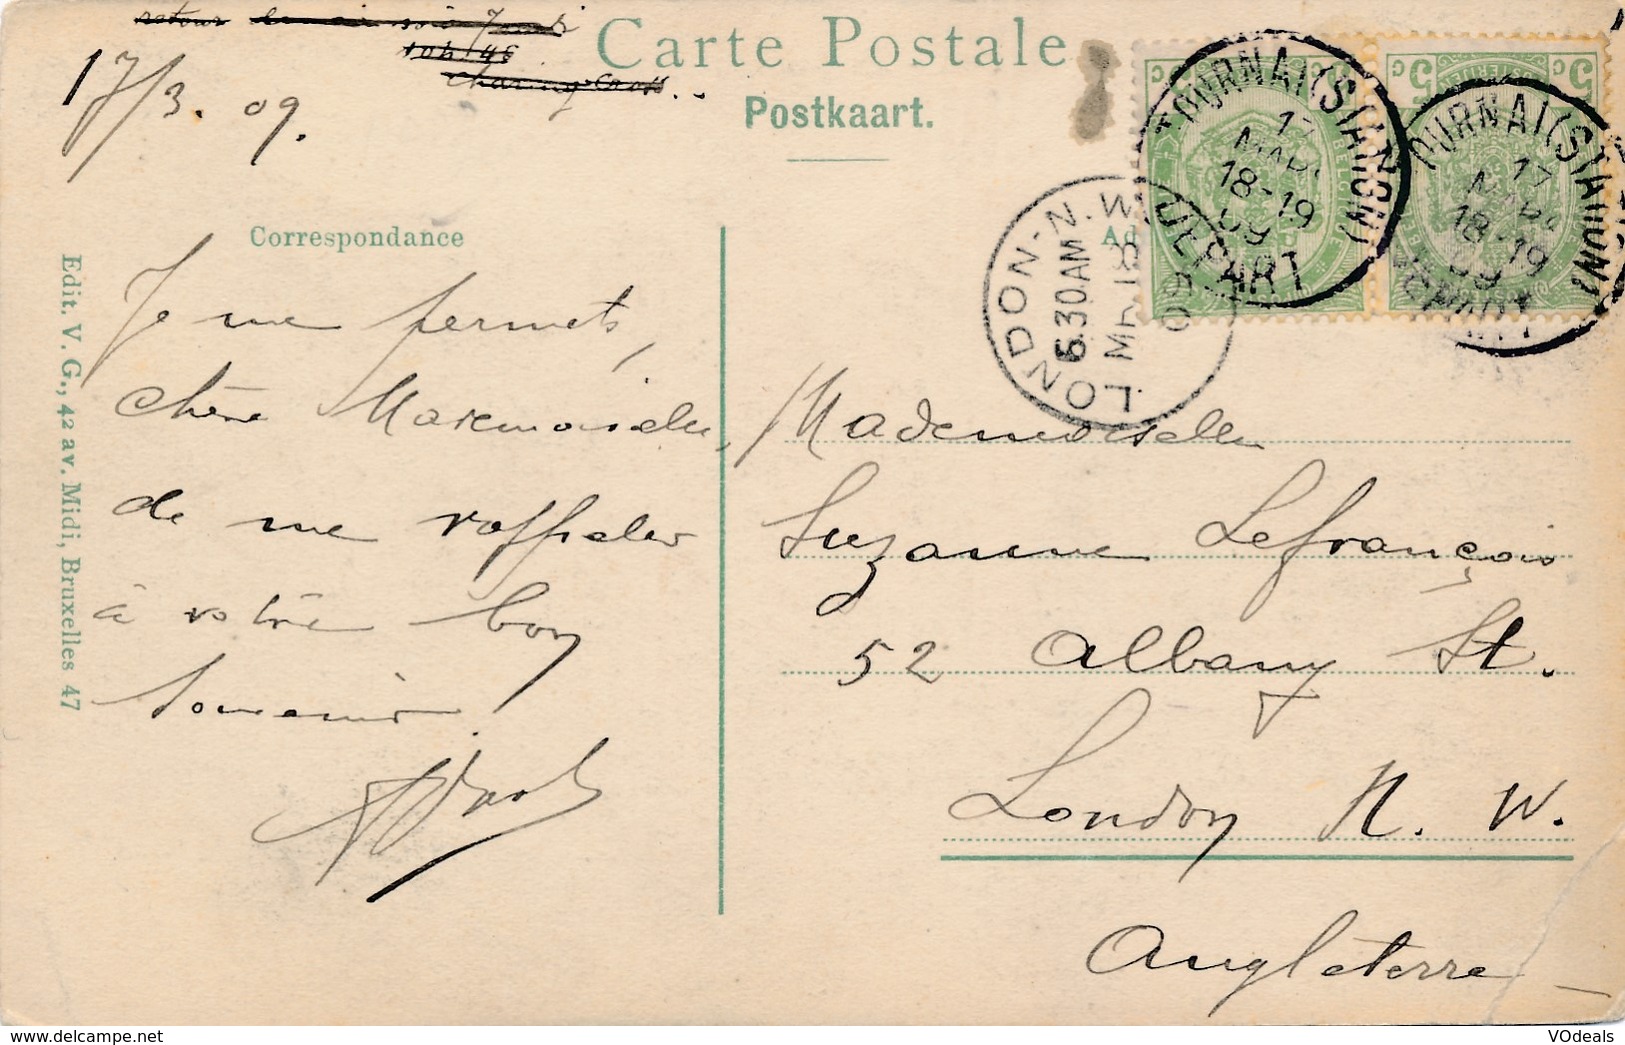 retour
10h146
Charing Cross..
Carte Postale
Postkaart.
17/3.09.
Correspondance
Je me permets,
chère Mademoiselle,
de me rappeler
à votre bon
souvenir.
Edit. V. G., 42 av. Midi, Bruxelles 47
5 C
C 5
TOURNAI (STATION)
17
18-19
09
DEPART
TOURNAI (STATION)
17
18-19
09
DEPART
LONDON-N.W.
6.30AM
MR 18
09
Ad
Mademoiselle
Suzanne Lefrançois
52 Albany St.
London N. W.
Angleterre
https://www.delcampe.net
VOdeals